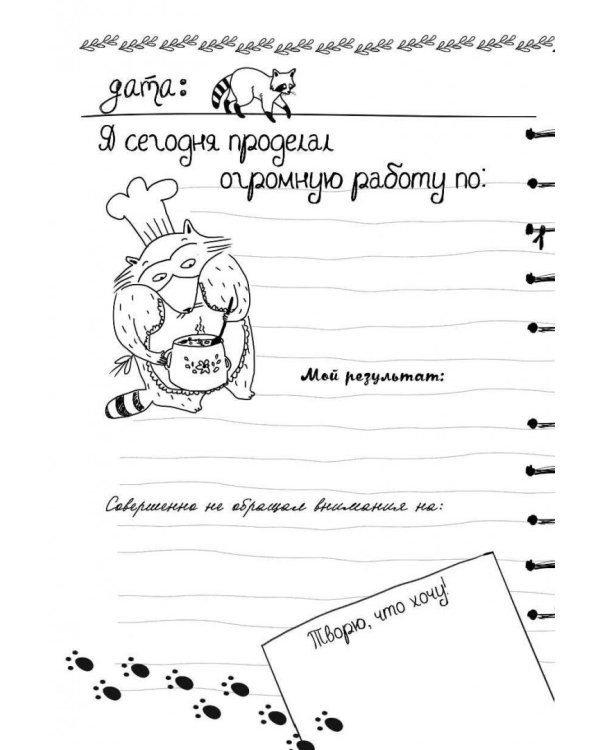 дата:
Я сегодня проделал
огромную работу по:
Мой результат:
Совершенно не обращал внимания на:
Творю, что хочу!